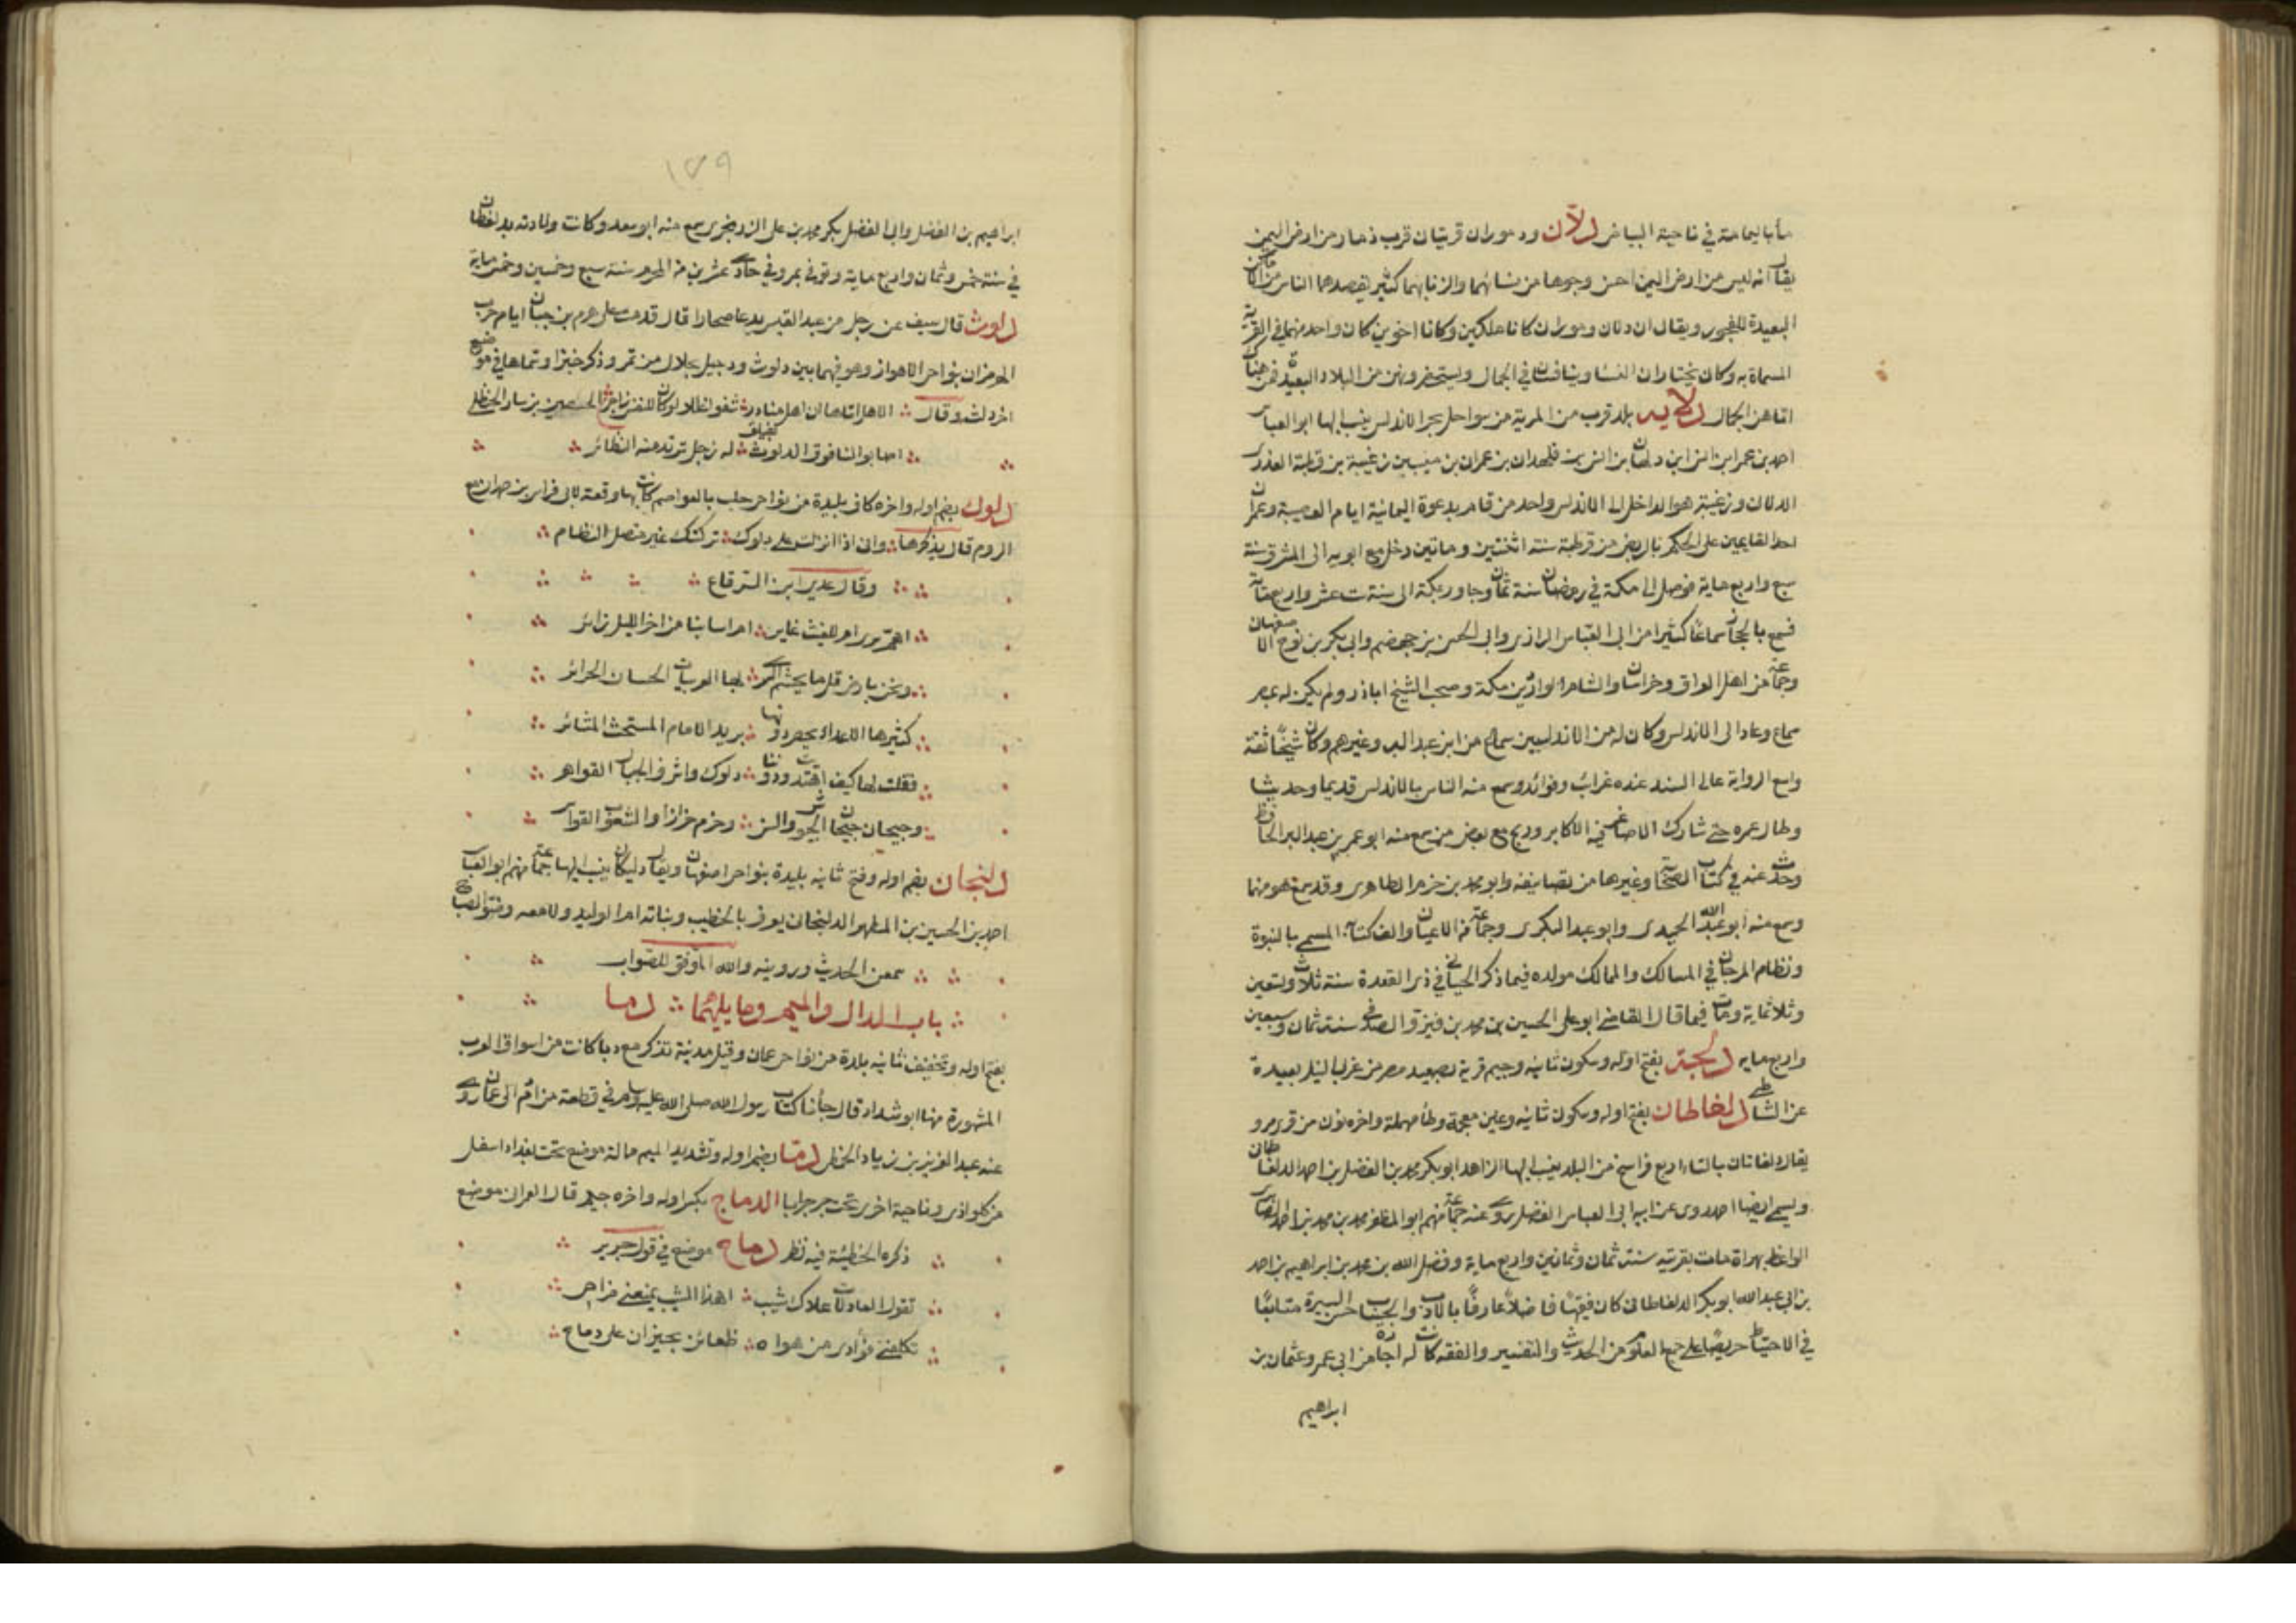 مأباليمامة في ناحية البياض دلان ودموران قريتان قرب ذمار من ارض اليمن
يقال انه ليس من ارض اليمن احسن وجوها من نسائهما والزنا بهما كثير يقصدهما الناس من الاماكن
البعيدة للفجور ويقال ان دلان ودموران كانا ملكين وكانا اخوين كان واحد منهما في القرية
المسماة به وكان يختاران النسا ويتنافسان في الجمال ويستحضرونهن من البلاد البعيدة فمن هناك
اتاهن الجمال دلايه بلد قرب من المرية من سواحل بحر الاندلس ينسب اليها ابو العباس
احمد بن عمر ابن انس ابن دلهاث بن انس بن فلهدان بن عمران بن منيب بن زغيبة بن قطبة العذري
الدلان وزغيبة هو الداخل الى الاندلس واحد من قام بدعوة اليمانية ايام العصبية وعمران
احد القايمين على الحكم بالربض من قرطبة سنة اثنتين وماتين دخل مع ابويه الى المشرق سنة
سبع واربع ماية فوصل الى مكة في رمضان سنة ثمان وجاور بمكة الى سنة ست عشر واربعماية
فسمع بالحجاز سماعا كثيرا من ابي العباس الرازي وابي الحسن بن جهضم وابي بكر بن نوح الاصفهان
وجماعة من اهل العراق وخراسان والشام الواردين مكة وصحب الشيخ اباذر ولم يكن له بمصر
سماع وعاد الى الاندلس وكان له من الاندلسيين سماع من ابن عبد البر وغيرهم وكان شيخا ثقة
واسع الرواية عالي السند عنده غرائب وفوائد وسمع منه الناس بالاندلس قديما وحديثا
وطال عمره حتى شارك الاصاغر فيه الاكابر وربع مع بعض من سمع منه ابو عمر بن عبد البر الحافظ
وحدث عنه في كتاب الصحابة وغيرها من تصانيفه وابو محمد بن حزم الظاهري وقد سمع هو منهما
وسمع منه ابو عبد الله الحميدي وابو عبد البكري وجماعة من الاعيان والف كتابه المسمى بالنبوة
ونظام المرجان في المسالك والممالك مولده فيما ذكر الجياني في ذي القعدة سنة ثلاث وتسعين
وثلاثماية ومات فيما قال القاضي ابو علي الحسين بن محمد بن فيرة الصدفي سنة ثمان وسبعين
واربعمايه دلجة بفتح اوله وسكون ثانيه وجيم قرية بصعيد مصر من غربي النيل بعيدة
عن الشاطي دلغاطان بفتح اوله وسكون ثانيه وغين معجمة وطا مهملة واخره نون من قرى مرو
يقال دلغاتان بالتا اربع فراسخ من البلد ينسب اليها الزاهد ابو بكر محمد بن الفضل بن احمد الدلغاطان
ويسمى ايضا احمد روى عن ابيه ابي العباس الفضل روى عنه جماعة منهم ابو المظفر محمد بن محمد بن احمد الصابري
الواعظ بهراة مات بقريته سنة ثمان وثمانين واربع ماية وفضل الله بن محمد بن ابراهيم بن احمد
بن ابي عبد الله ابو بكر الدلغاطاني كان فقيها فاضلا عارفا بالادب والحساب حسن السيرة متتابعا
في الاحتياط حريصا على جمع العلوم من الحديث والتفسير والفقه كانت له اجازة من ابي عمرو عثمان بن
ابراهيم
١٧٩
ابراهيم بن الفضل وابي الفضل بكر محمد بن على الزرنجري سمع منه ابو سعد وكانت ولادته بدلغطان
في سنة خمس وثمان واربع ماية وتوفي بمرو في حادي عشرين من المحرم سنة سبع وخمسين وخمس ماية
دلوث قال سيف عن رجل من عبد القيس يدعا صحارا قال قدمت على هرم بن حيان ايام حرب
الهرمزان بنواحي الاهواز وهو فيما بين دلوث ودجيل بجلال من تمر وذكر خبرا وتماها في موضع
اخر دلث وقال الاهل اتاها ان اهل مناذر شفوا غللا لو كان للنفس زاجر الحصين بن نيار الحنظلي
اصابوا لنا فوق الدلوث بفيلق له زجل ترتد منه النظائر
دلوك بضم اوله واخره كاف بليدة من نواحي حلب بالعواصم كانت بها وقعة لابي فراس بن حمدان مع
الروم قال يذكرها وان اذا نزلت على دلوك تركتك غير متصل النظام
وقال عدي ابن الرقاع
اهم سرى ام للغيث غاير ام انتابنا من اخر الليل زائر
ونحن بارض قل ما يجشم السرى بها العربيات الحسان الحرائر
كثير بها الاعداء يحصر دونها بريد الامام المستحث المثائر
فقلت لها كيف اهتديت ودوننا دلوك واشراف الجبال القواهر
وجيحان جيحان الجيوش والس وحزم خزازا والشعوب القواسر
دلنجان بضم اوله وفتح ثانيه بليدة بنواحي اصفهان ويقال دليكان ينسب اليها جماعة منهم ابو العباس
احمد بن الحسين بن المطهر الدلنجان يعرف بالخطيب وبناته ام الوليد ولامعه وضوء الصباح
سمعن الحديث وروينه والله الموفق للصواب
باب الدال والميم وما يليهما دما
بفتح اوله وتخفيف ثانيه بلدة من نواحي عمان وقيل مدينة تذكر مع دبا كانت من اسواق العرب
المشهورة منها ابو شداد قال جأنا كتاب رسول الله صلى الله عليه وسلم في قطعة من ادم الى عمان روى
عنه عبد العزيز بن زياد الحنظلي دما بضم اوله وتشديد الميم ممالة موضع تحت بغداد اسفل
من كلواذى وناحية اخرى تحت جرجرايا الدماج بكسر اوله واخره جيم قال العمران موضع
ذكره الحطيئة فيه نظر دماح موضع في قول جرير
تقول العاذلات علاك شيب اهذا الشيب يمنعني مزاحي
تكلفني فؤادي من هواه ظعائن يجتزن على دماح